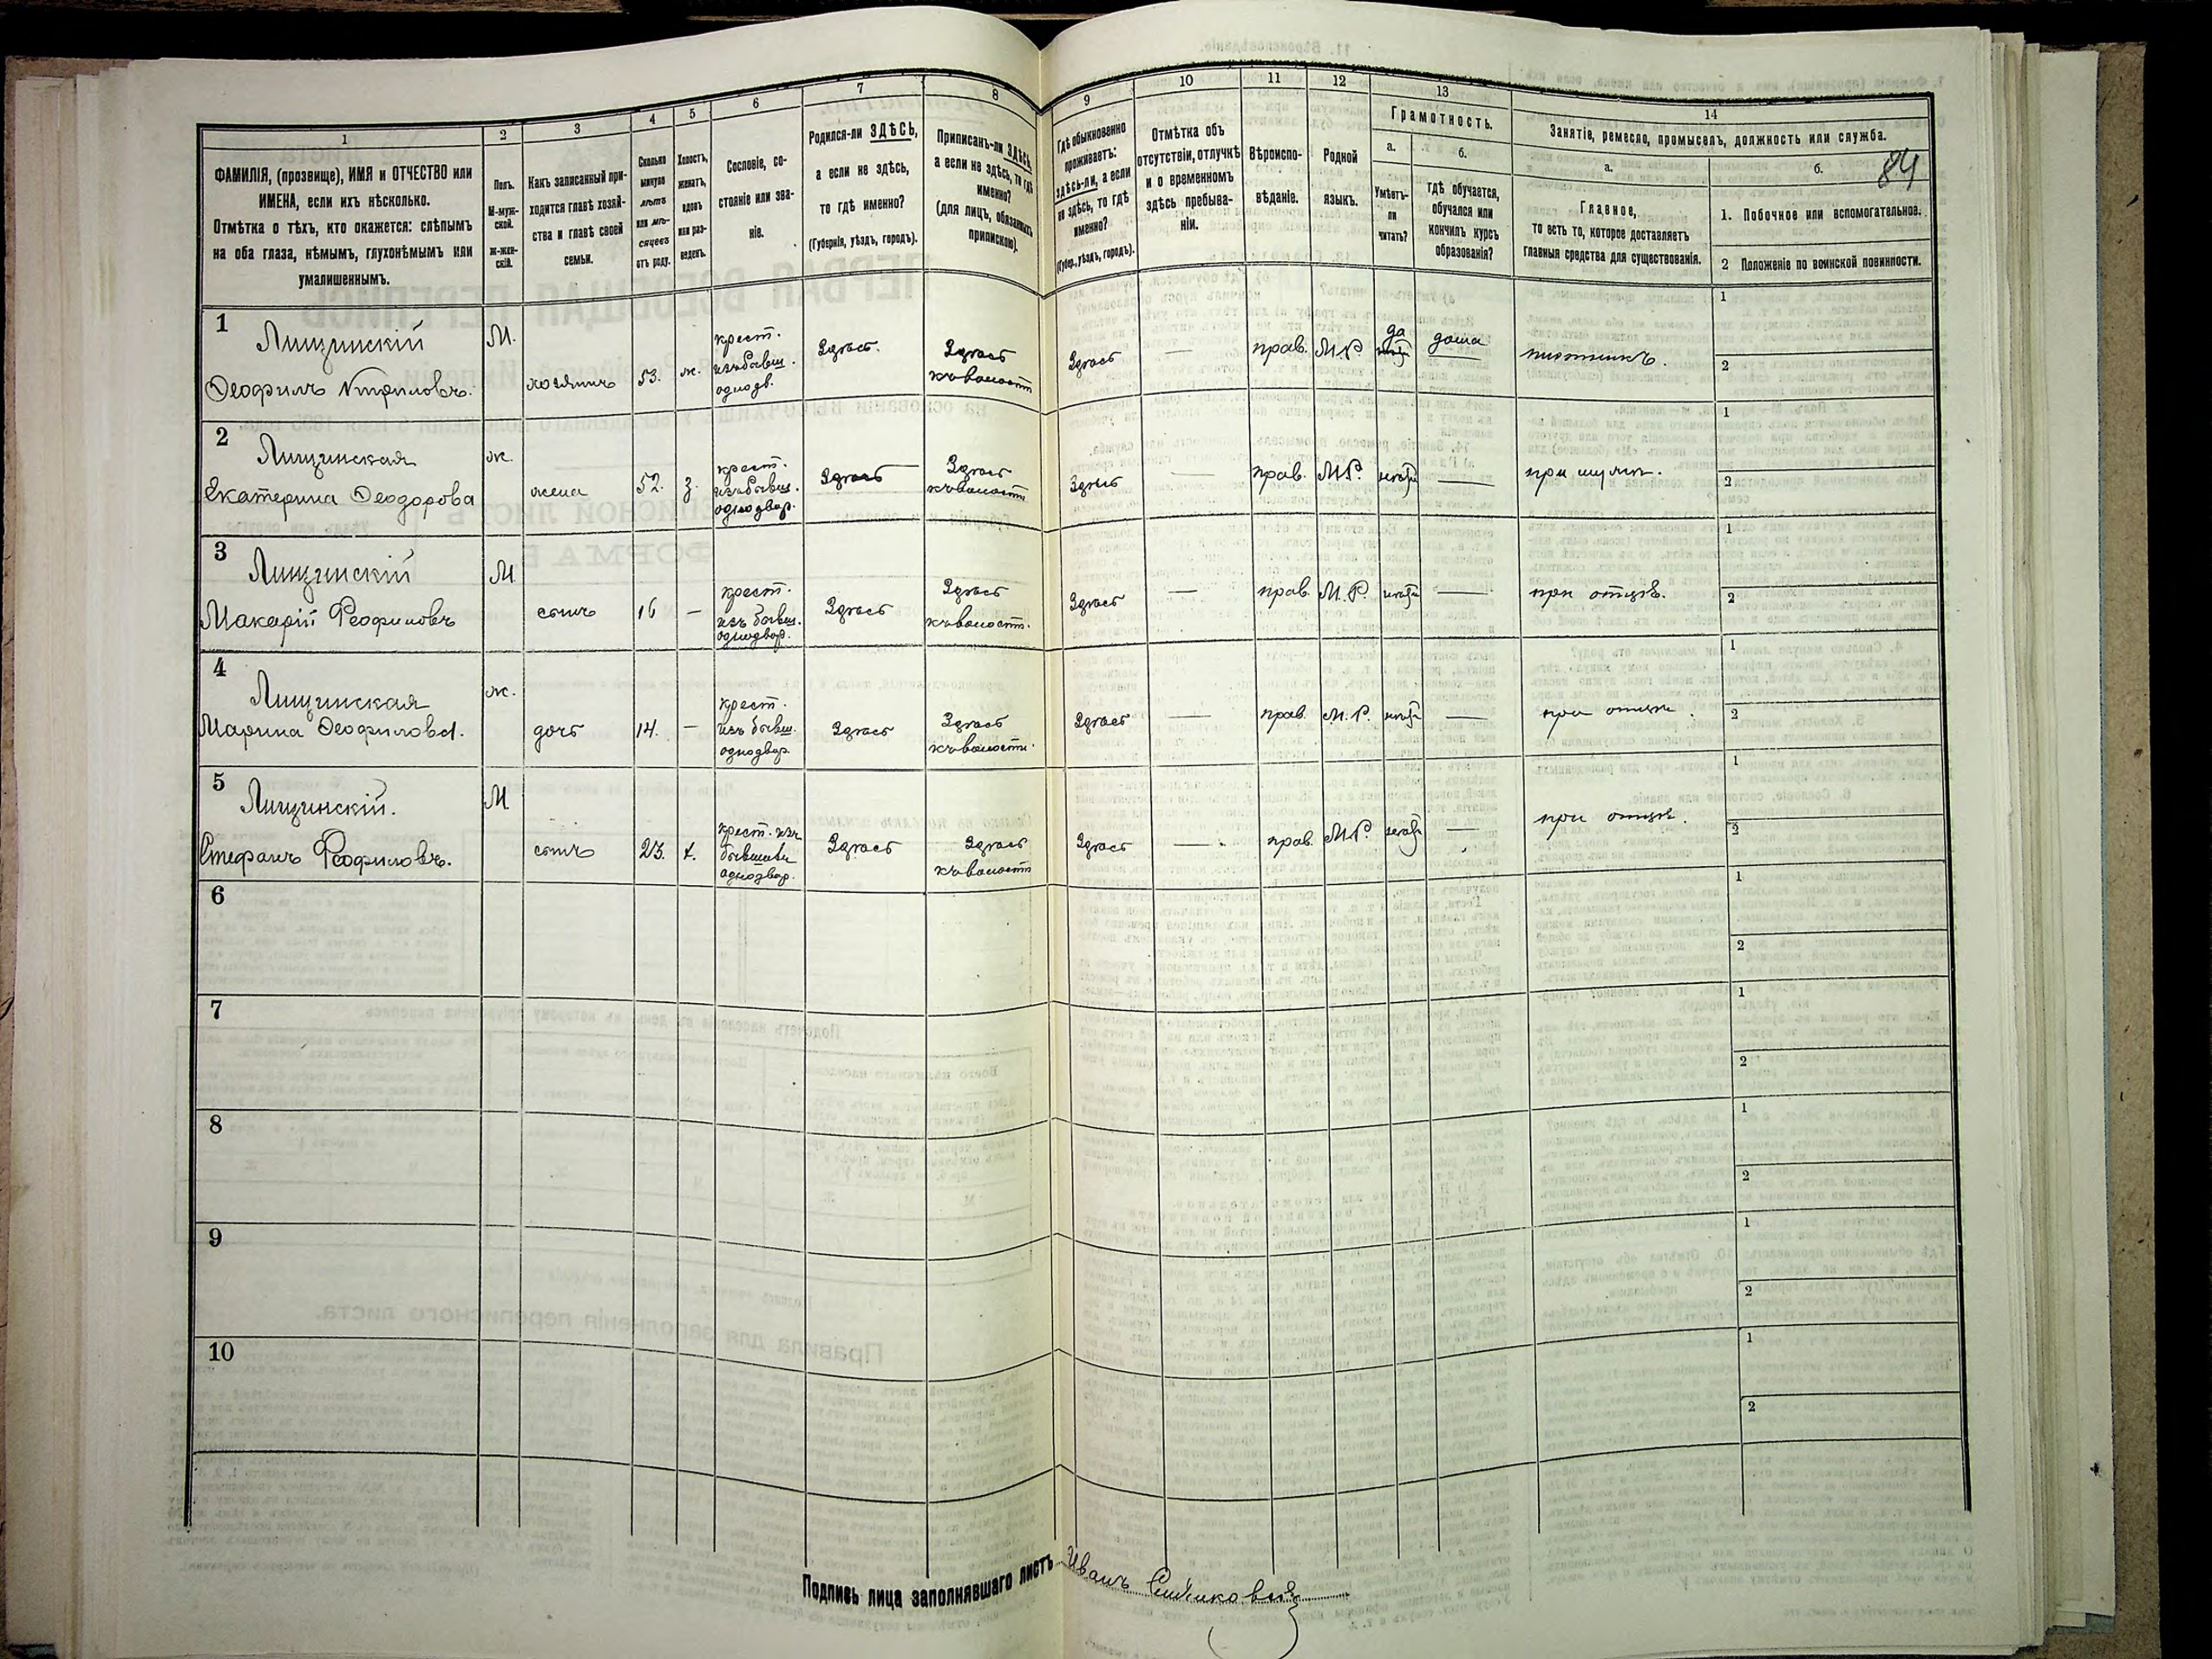 1
2
3
4
5
6
7
8
9
10
11
12
13
14
ФАМИЛІЯ, (прозвище), ИМЯ и ОТЧЕСТВО или
ИМЕНА, если ихъ нѣсколько.
Отмѣтка о тѣхъ, кто окажется: слѣпымъ
на оба глаза, нѣмымъ, глухонѣмымъ или
умалишеннымъ.
Полъ.
М-муж-
ской.
Ж-жен-
скій.
Какъ записанный при-
ходится главѣ хозяй-
ства и главѣ своей
семьи.
Сколько
минуло
лѣтъ
или мѣ-
сяцевъ
отъ роду.
Холостъ,
женатъ,
вдовъ
или раз-
веденъ.
Сословіе, со-
стояніе или зва-
ніе.
Родился-ли ЗДѢСЬ,
а если не здѣсь,
то гдѣ именно?
(Губернія, уѣздъ, городъ).
Приписанъ-ли ЗДѢСЬ,
а если не здѣсь, то гдѣ
именно?
(для лицъ, обязанныхъ
припискою).
Гдѣ обыкновенно
проживаетъ:
здѣсь-ли, а если
не здѣсь, то гдѣ
именно?
(Губер., уѣздъ, городъ).
Отмѣтка объ
отсутствіи, отлучкѣ
и о временномъ
здѣсь пребыва-
ніи.
Вѣроиспо-
вѣданіе.
Родной
языкъ.
Грамотность.
а.
Умѣетъ-
ли
читать?
б.
гдѣ обучается,
обучался или
кончилъ курсъ
образованія?
Занятіе, ремесло, промыселъ, должность или служба.
а.
Главное,
то есть то, которое доставляетъ
главныя средства для существованія.
б.
84
1. Побочное или вспомогательное.
2 Положеніе по воинской повинности.
1
Лищинскій
Ѳеофилъ
М.
хозяинъ
53.
ж.
крест.
изъ бывш.
однодв.
Здѣсь.
Здѣсь
къ волости
Здѣсь
—
прав.
М.Р.
да
дома
1
2
2
Лищинская
Екатерина Ѳеодорова
ж.
жена
52.
з.
крест.
изъ бывш.
однодвор.
Здѣсь
Здѣсь
къ волости
Здѣсь
—
прав.
М.Р.
нѣтъ
—
при мужѣ.
1
2
3
Лищинскій
Макарій Ѳеофиловъ
М
сынъ
16
—
крест.
изъ бывш.
однодвор.
Здѣсь
Здѣсь
къ волости.
Здѣсь
—
прав.
М.Р.
нѣтъ
—
при отцѣ.
1
2
4
Лищинская
Марина Ѳеофилова.
ж.
дочь
14.
—
крест.
изъ бывш.
однодвор.
Здѣсь
Здѣсь
къ волости.
Здѣсь
—
прав.
М.Р.
нѣтъ
—
при отцѣ.
1
2
5
Лищинскій.
Стефанъ Ѳеофиловъ.
М
сынъ
23.
х.
крест. изъ
бывшихъ
однодвор.
Здѣсь
Здѣсь
къ волости
Здѣсь
—
прав.
М.Р.
нѣтъ
—
при отцѣ.
1
2
6
1
2
7
1
2
8
1
2
9
1
2
10
1
2
Подпись лица заполнявшаго листъ Иванъ